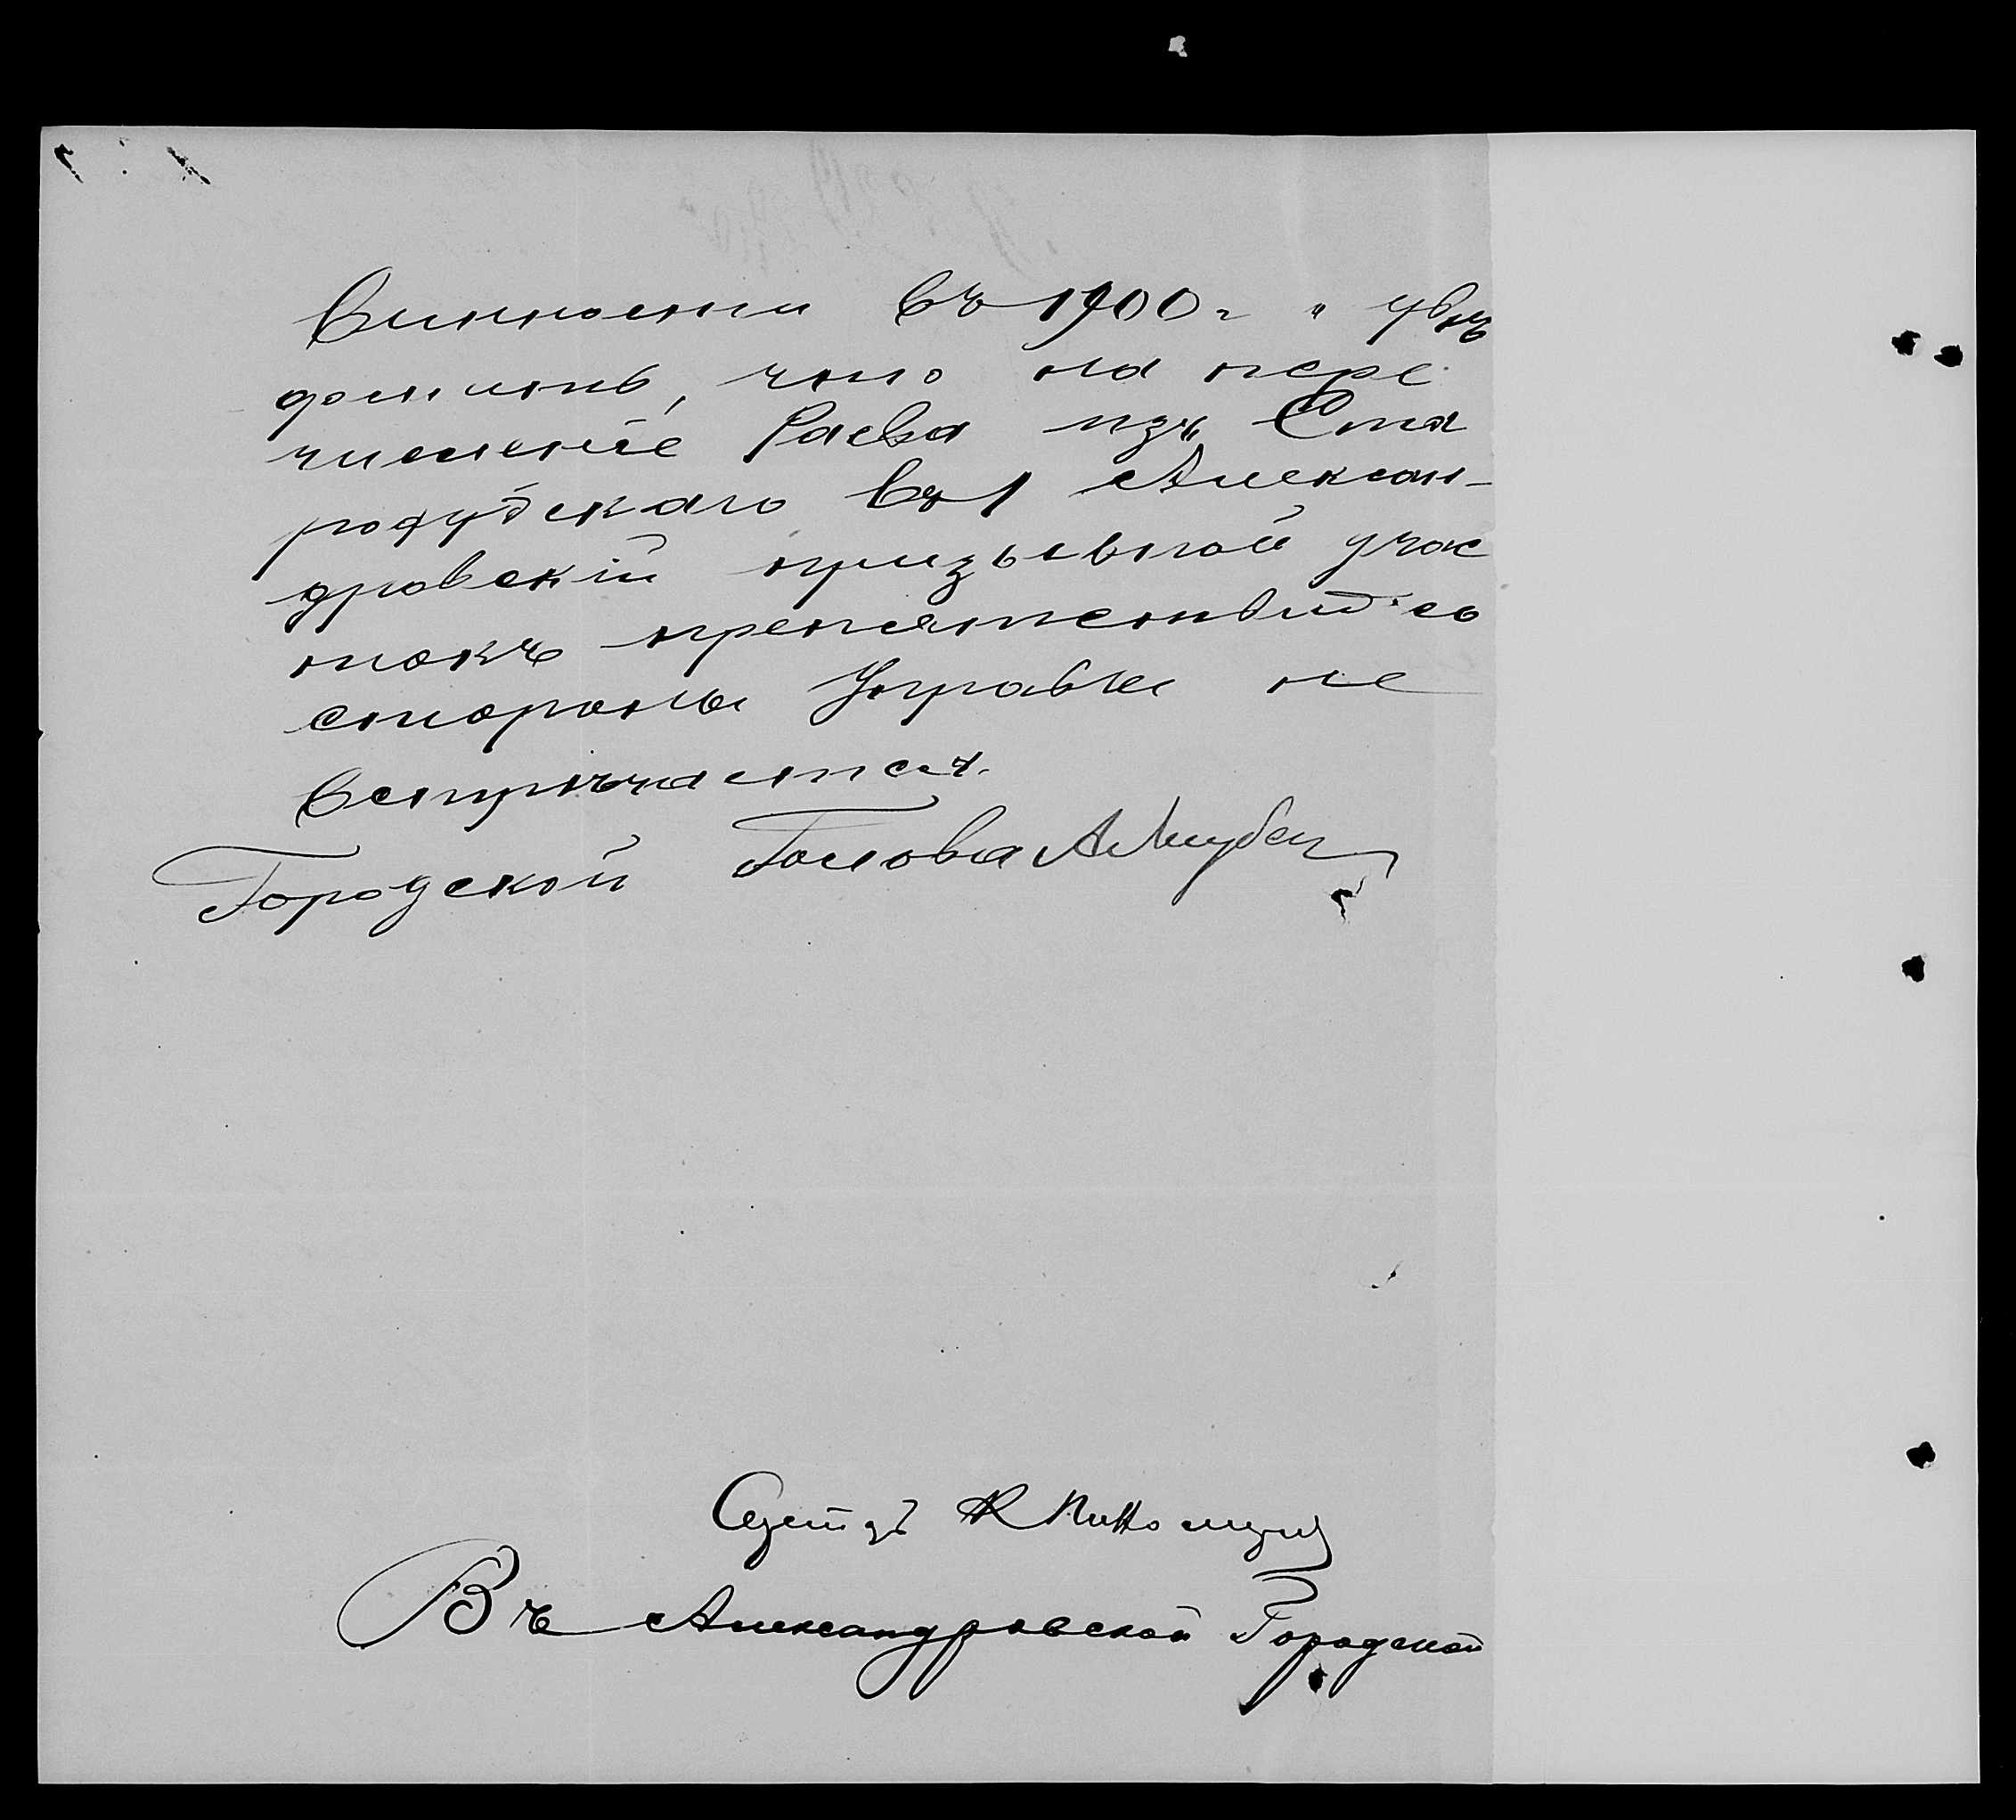 винности въ 1900 г. увѣ
домить, что на пере
численіе Раева изъ Ста
родубскаго въ 1 Алексан-
дровскій призывной учас
токъ препятствій со
стороны Управы не
встрѣчается.
Городской Голова А.
Въ Александровской Городской